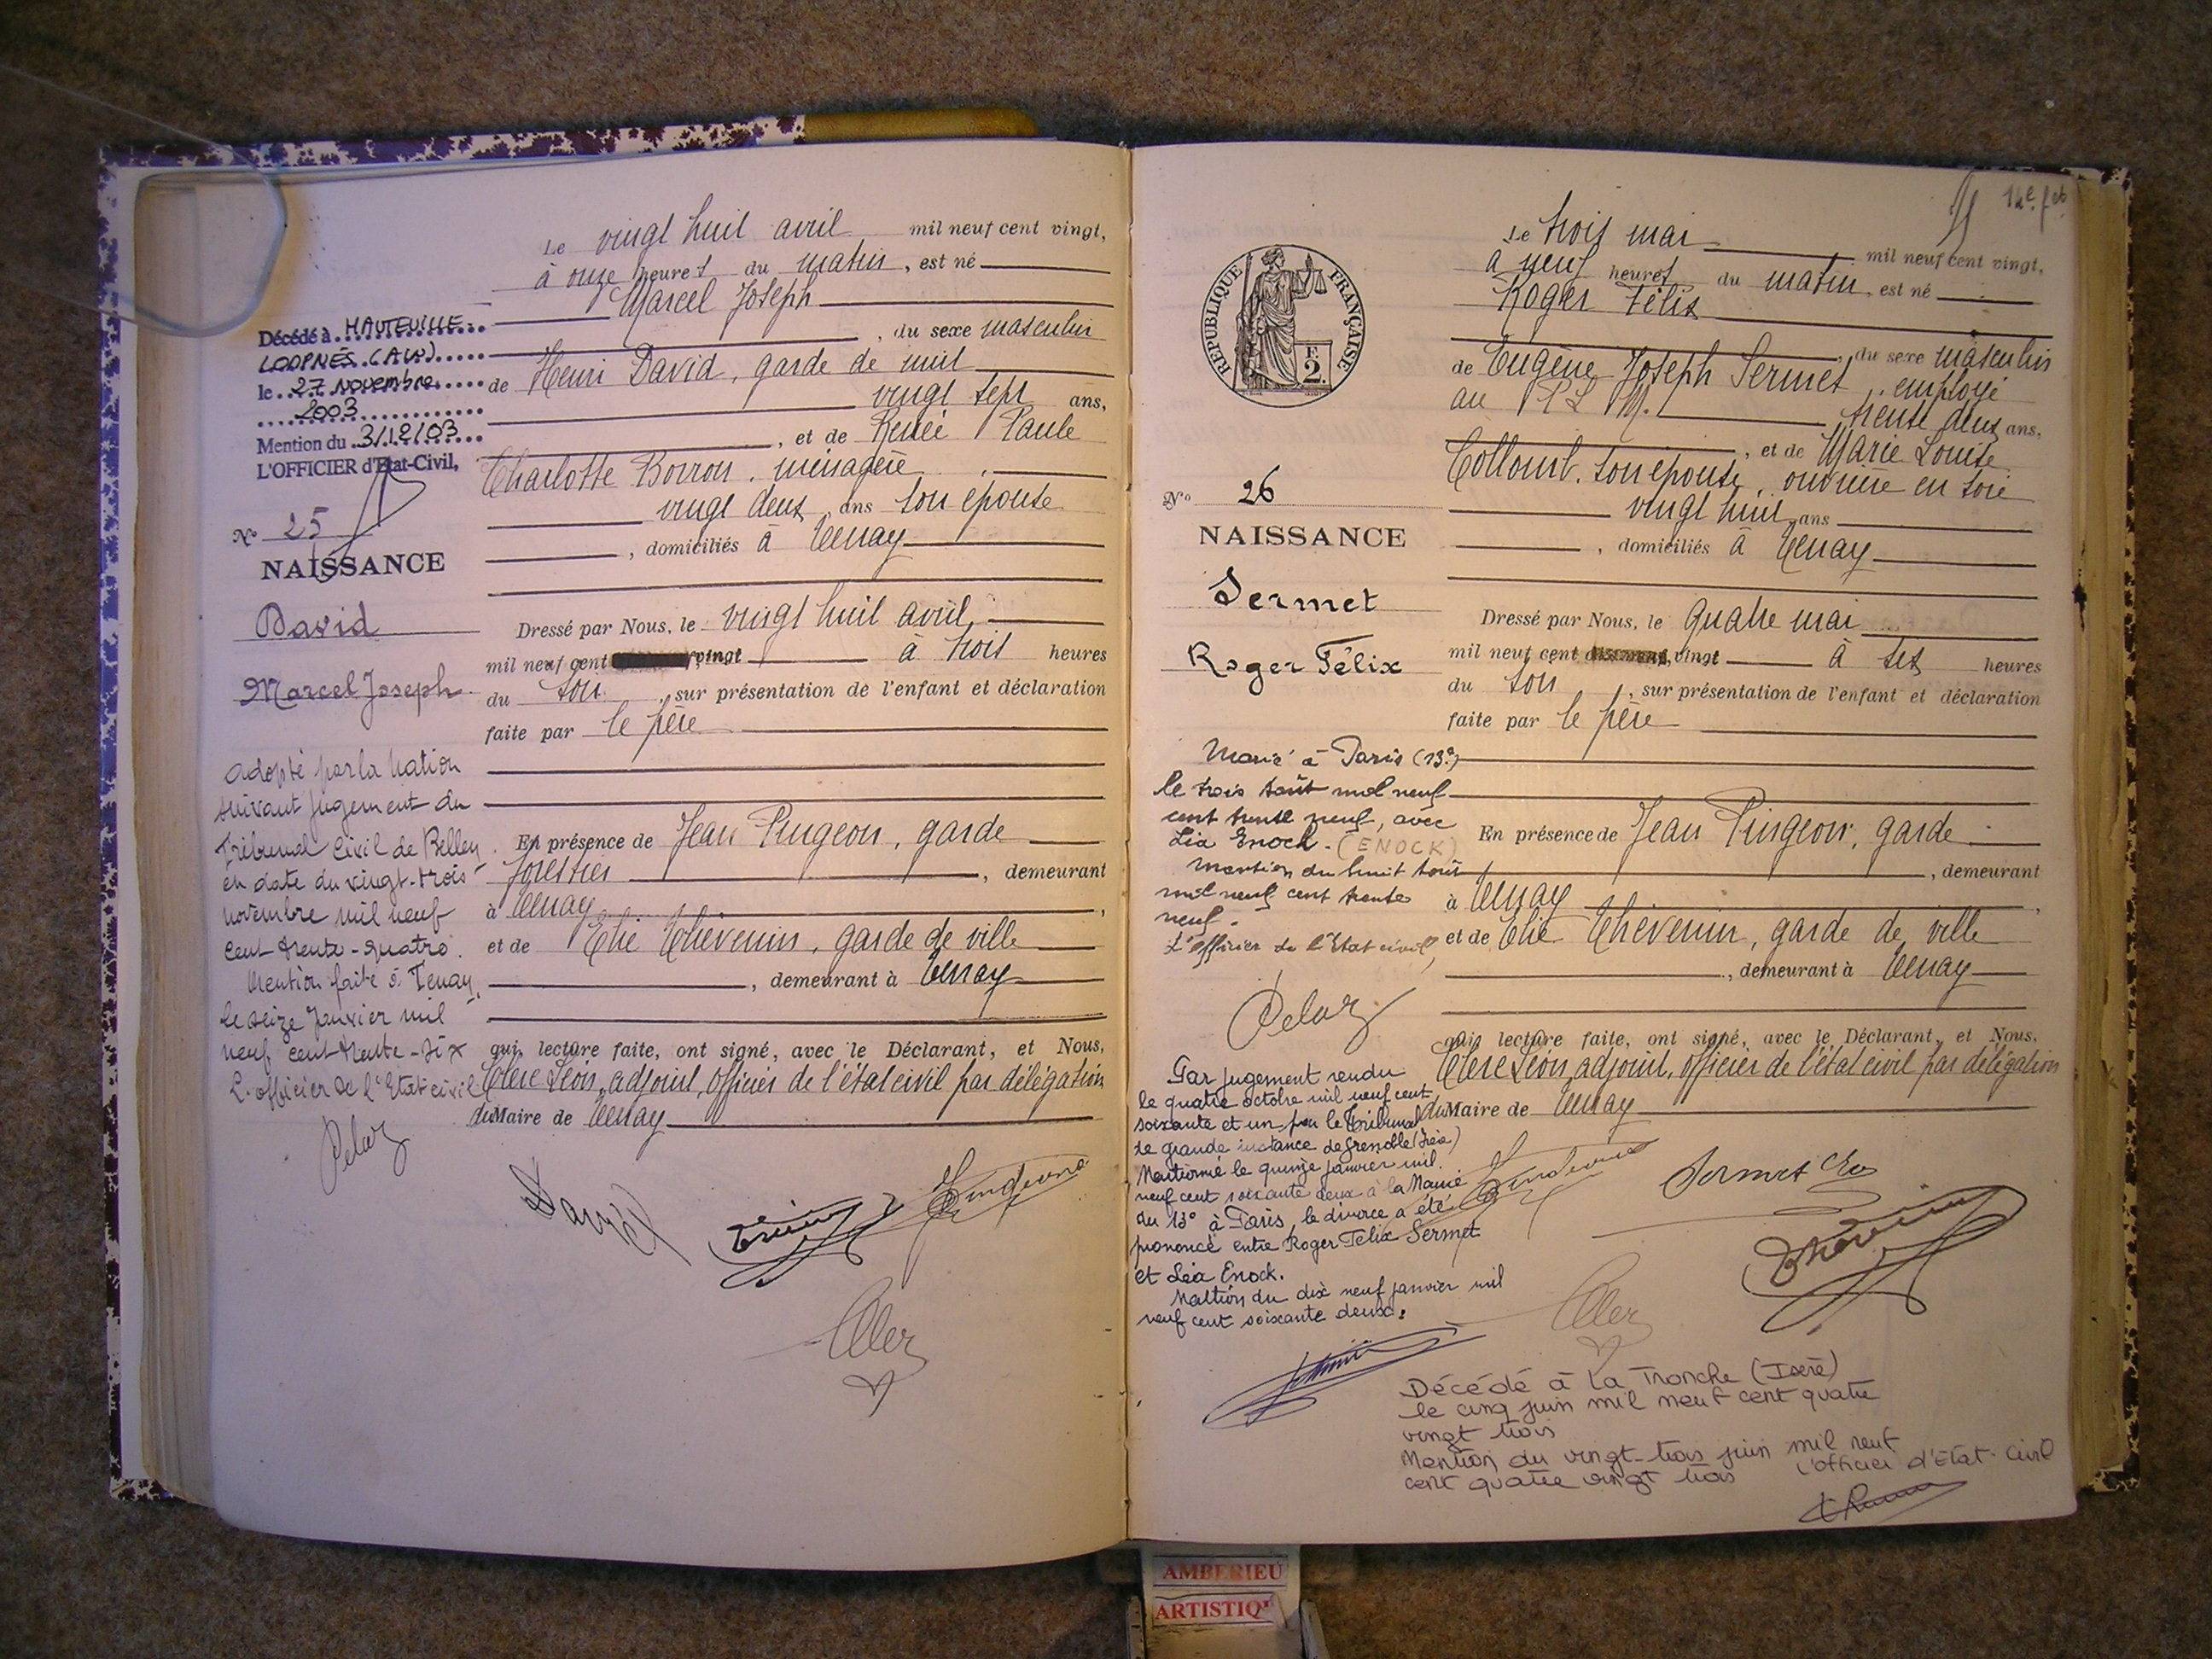 Le vingt huit avril mil neuf cent vingt,
à onze heures du matin, est né
Marcel Joseph
, du sexe masculin
de Henri David, garde de nuit
vingt sept ans,
, et de Renée Paule
Charlotte Borron, ménagère
vingt deux ans son épouse
, domiciliés à Tenay
Dressé par Nous, le vingt huit avril
mil neuf cent vingt à trois heures
du soir, sur présentation de l'enfant et déclaration
faite par le père
En présence de Jean Pingeon, garde
forestier, demeurant
à Tenay,
et de Elie Thévenin, garde de ville
, demeurant à Tenay
qui, lecture faite, ont signé, avec le Déclarant, et Nous,
Clerc Léon, adjoint, officier de l'état civil par délégation
du Maire de Tenay
Décédé à HAUTEVILLE
LOMPNÉS (AIN)
le 27 novembre
2003
Mention du 3/12/03
L'OFFICIER d'Etat-Civil,
No 25
NAISSANCE
David
Marcel Joseph
adopté par la Nation
suivant jugement du
Tribunal Civil de Belley
en date du vingt-trois
novembre mil neuf
cent trente-quatre.
Mention faite à Tenay,
le seize janvier mil
neuf cent trente-six
L'officier de l'Etat civil
Pelaz
14e fet
Le trois mai mil neuf cent vingt,
à neuf heures du matin, est né
Roger Félix
, du sexe masculin
de Eugène Joseph Sermet, employé
au P L M. trente deux ans,
, et de Marie Louise
Collomb, son épouse, ouvrière en soie
vingt huit ans
, domiciliés à Tenay
Dressé par Nous, le quatre mai
mil neuf cent vingt à six heures
du soir, sur présentation de l'enfant et déclaration
faite par le père
En présence de Jean Pingeon, garde
, demeurant
à Tenay
et de Elie Thévenin, garde de ville
, demeurant à Tenay
qui, lecture faite, ont signé, avec le Déclarant, et Nous,
Clerc Léon, adjoint, officier de l'état civil par délégation
du Maire de Tenay
REPUBLIQUE FRANÇAISE
E
2.
No 26
NAISSANCE
Sermet
Roger Félix
Marié à Paris (13e)
le trois août mil neuf
cent trente neuf, avec
Léa Enock. (ENOCK)
Mention du huit août
mil neuf cent trente
neuf.
L'officier de l'Etat civil,
Pelaz
Par jugement rendu
le quatre octobre mil neuf cent
soixante et un par le Tribunal
de grande instance de Grenoble (Isère)
Mentionné le quinze janvier mil
neuf cent soixante deux à la Mairie
du 13e à Paris, le divorce a été
prononcé entre Roger Félix Sermet
et Léa Enock.
Mention du dix neuf janvier mil
neuf cent soixante deux.
Sermet
Décédé à La Tronche (Isère)
le cinq juin mil neuf cent quatre
vingt trois
Mention du vingt-trois juin mil neuf
cent quatre vingt trois L'officier d'Etat-Civil
AMBERIEU
ARTISTIQ